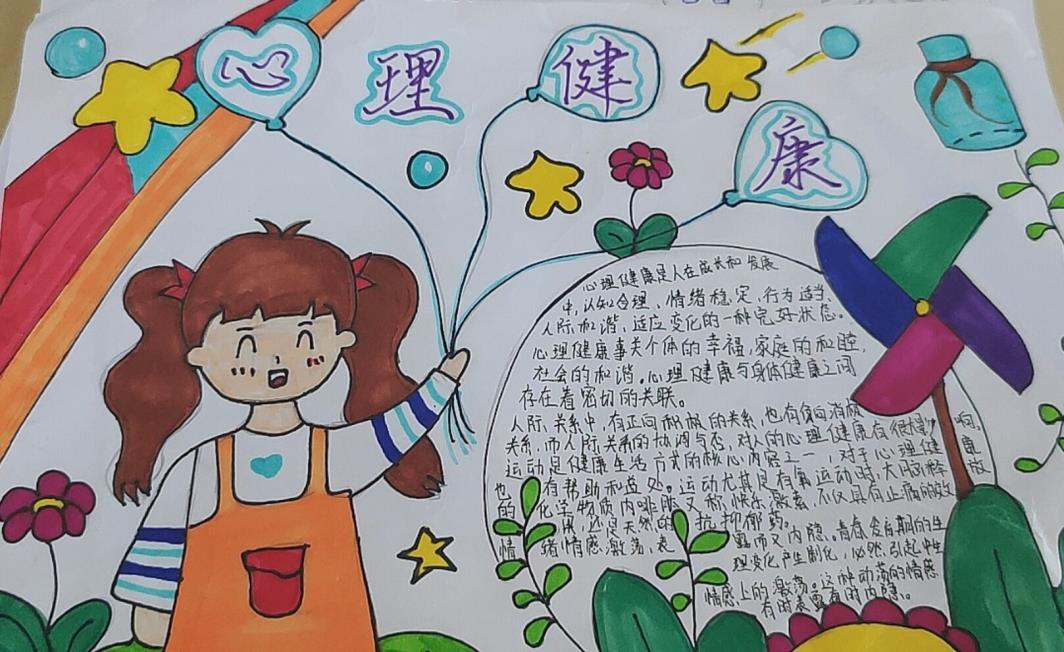 心理健康
心理健康是人在成长和发展
中,认知合理、情绪稳定、行为适当、
人际和谐、适应变化的一种完好状态。
心理健康事关个体的幸福,家庭的和睦,
社会的和谐。心理健康与身体健康之间
存在着密切的关联。
人际关系中,有正向积极的关系,也有负向消极
关系,而人际关系的协调与否,对人的心理健康有很大影响,
运动是健康生活方式的核心内容之一,对于心理健康
也有帮助和益处。运动尤其是有氧运动时,大脑释放
的化学物质内啡肽又称快乐激素,不仅具有止痛的效
果,还是天然的抗抑郁药。
情绪情感激荡、表露而又内隐。青春发育期的生
理变化产生
情感上的激荡。这种动荡的情感
有时表露有时内隐。